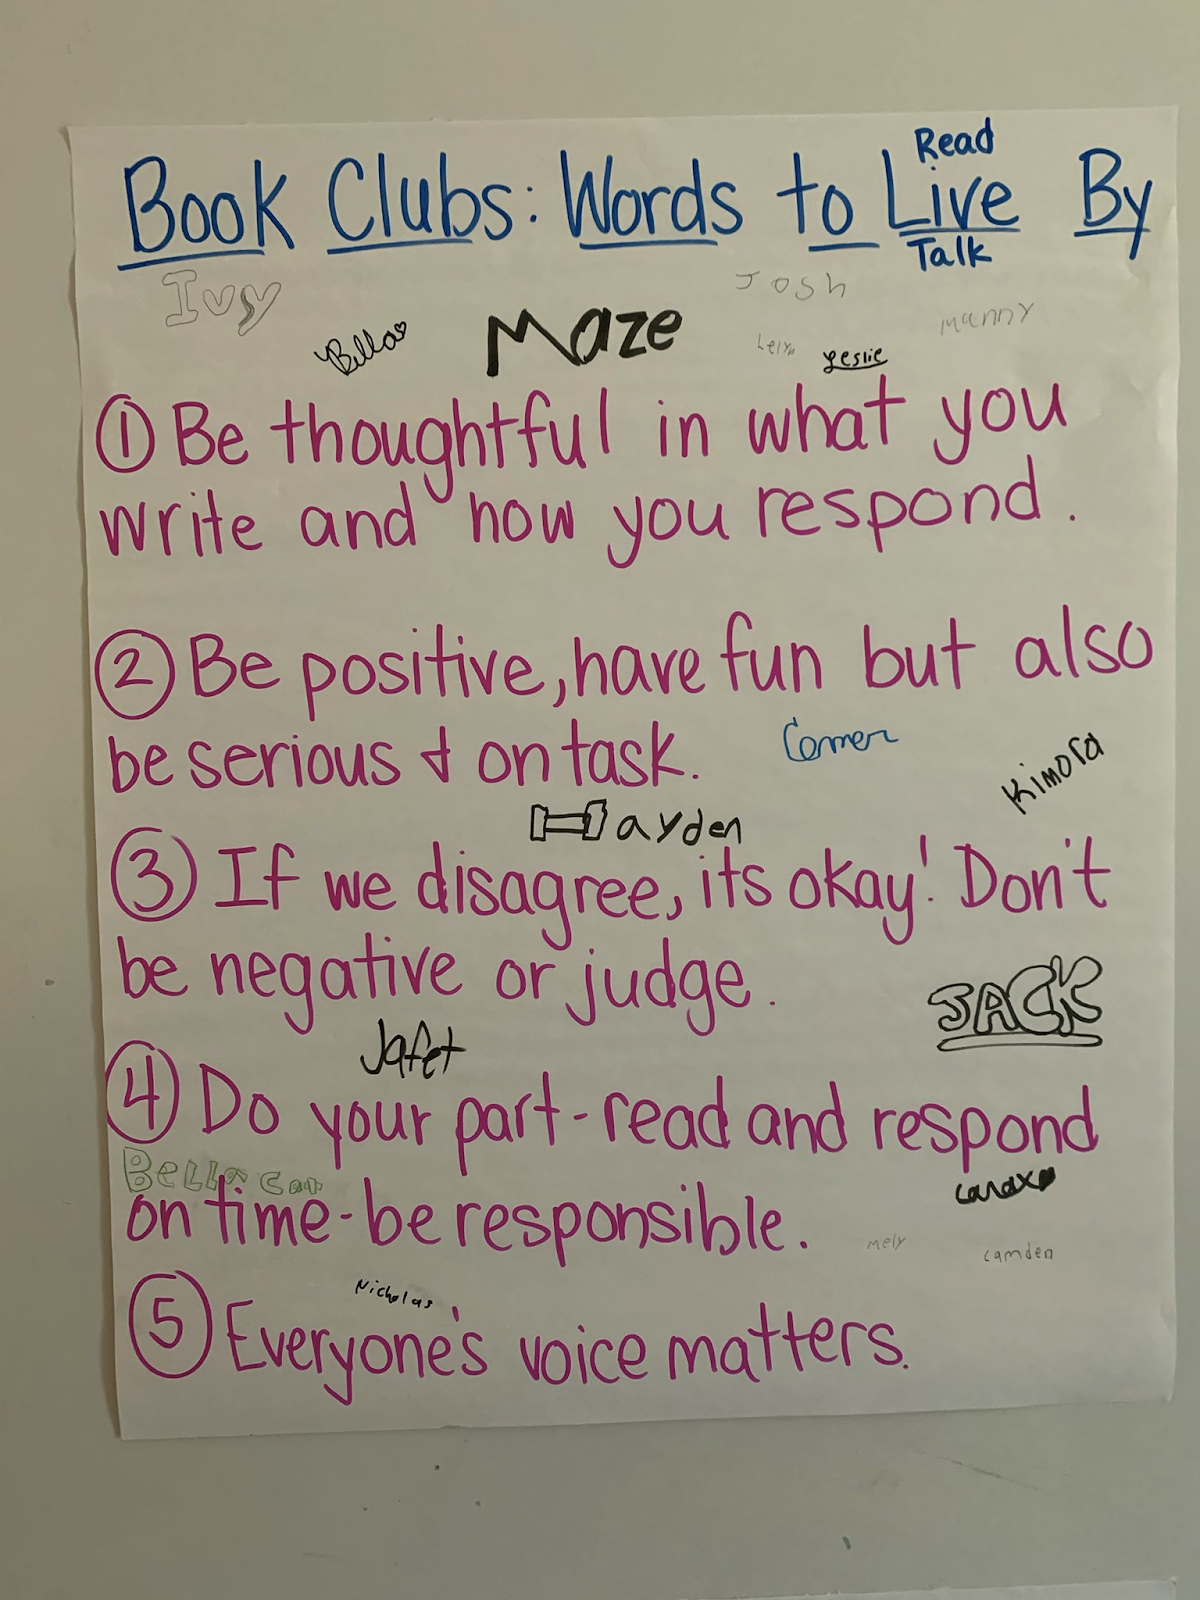 Read
Book Clubs: Words to Live By
Talk
Ivy
Josh
Bella
Maze
Manny
Leslie
① Be thoughtful in what you
write and how you respond.
② Be positive, have fun but also
be serious & on task.
Conner
Kimora
Hayden
③ If we disagree, its okay! Don't
be negative or judge.
JACK
Jafet
④ Do your part - read and respond
Bella
on time - be responsible.
mely
camden
Nicholas
⑤ Everyone's voice matters.